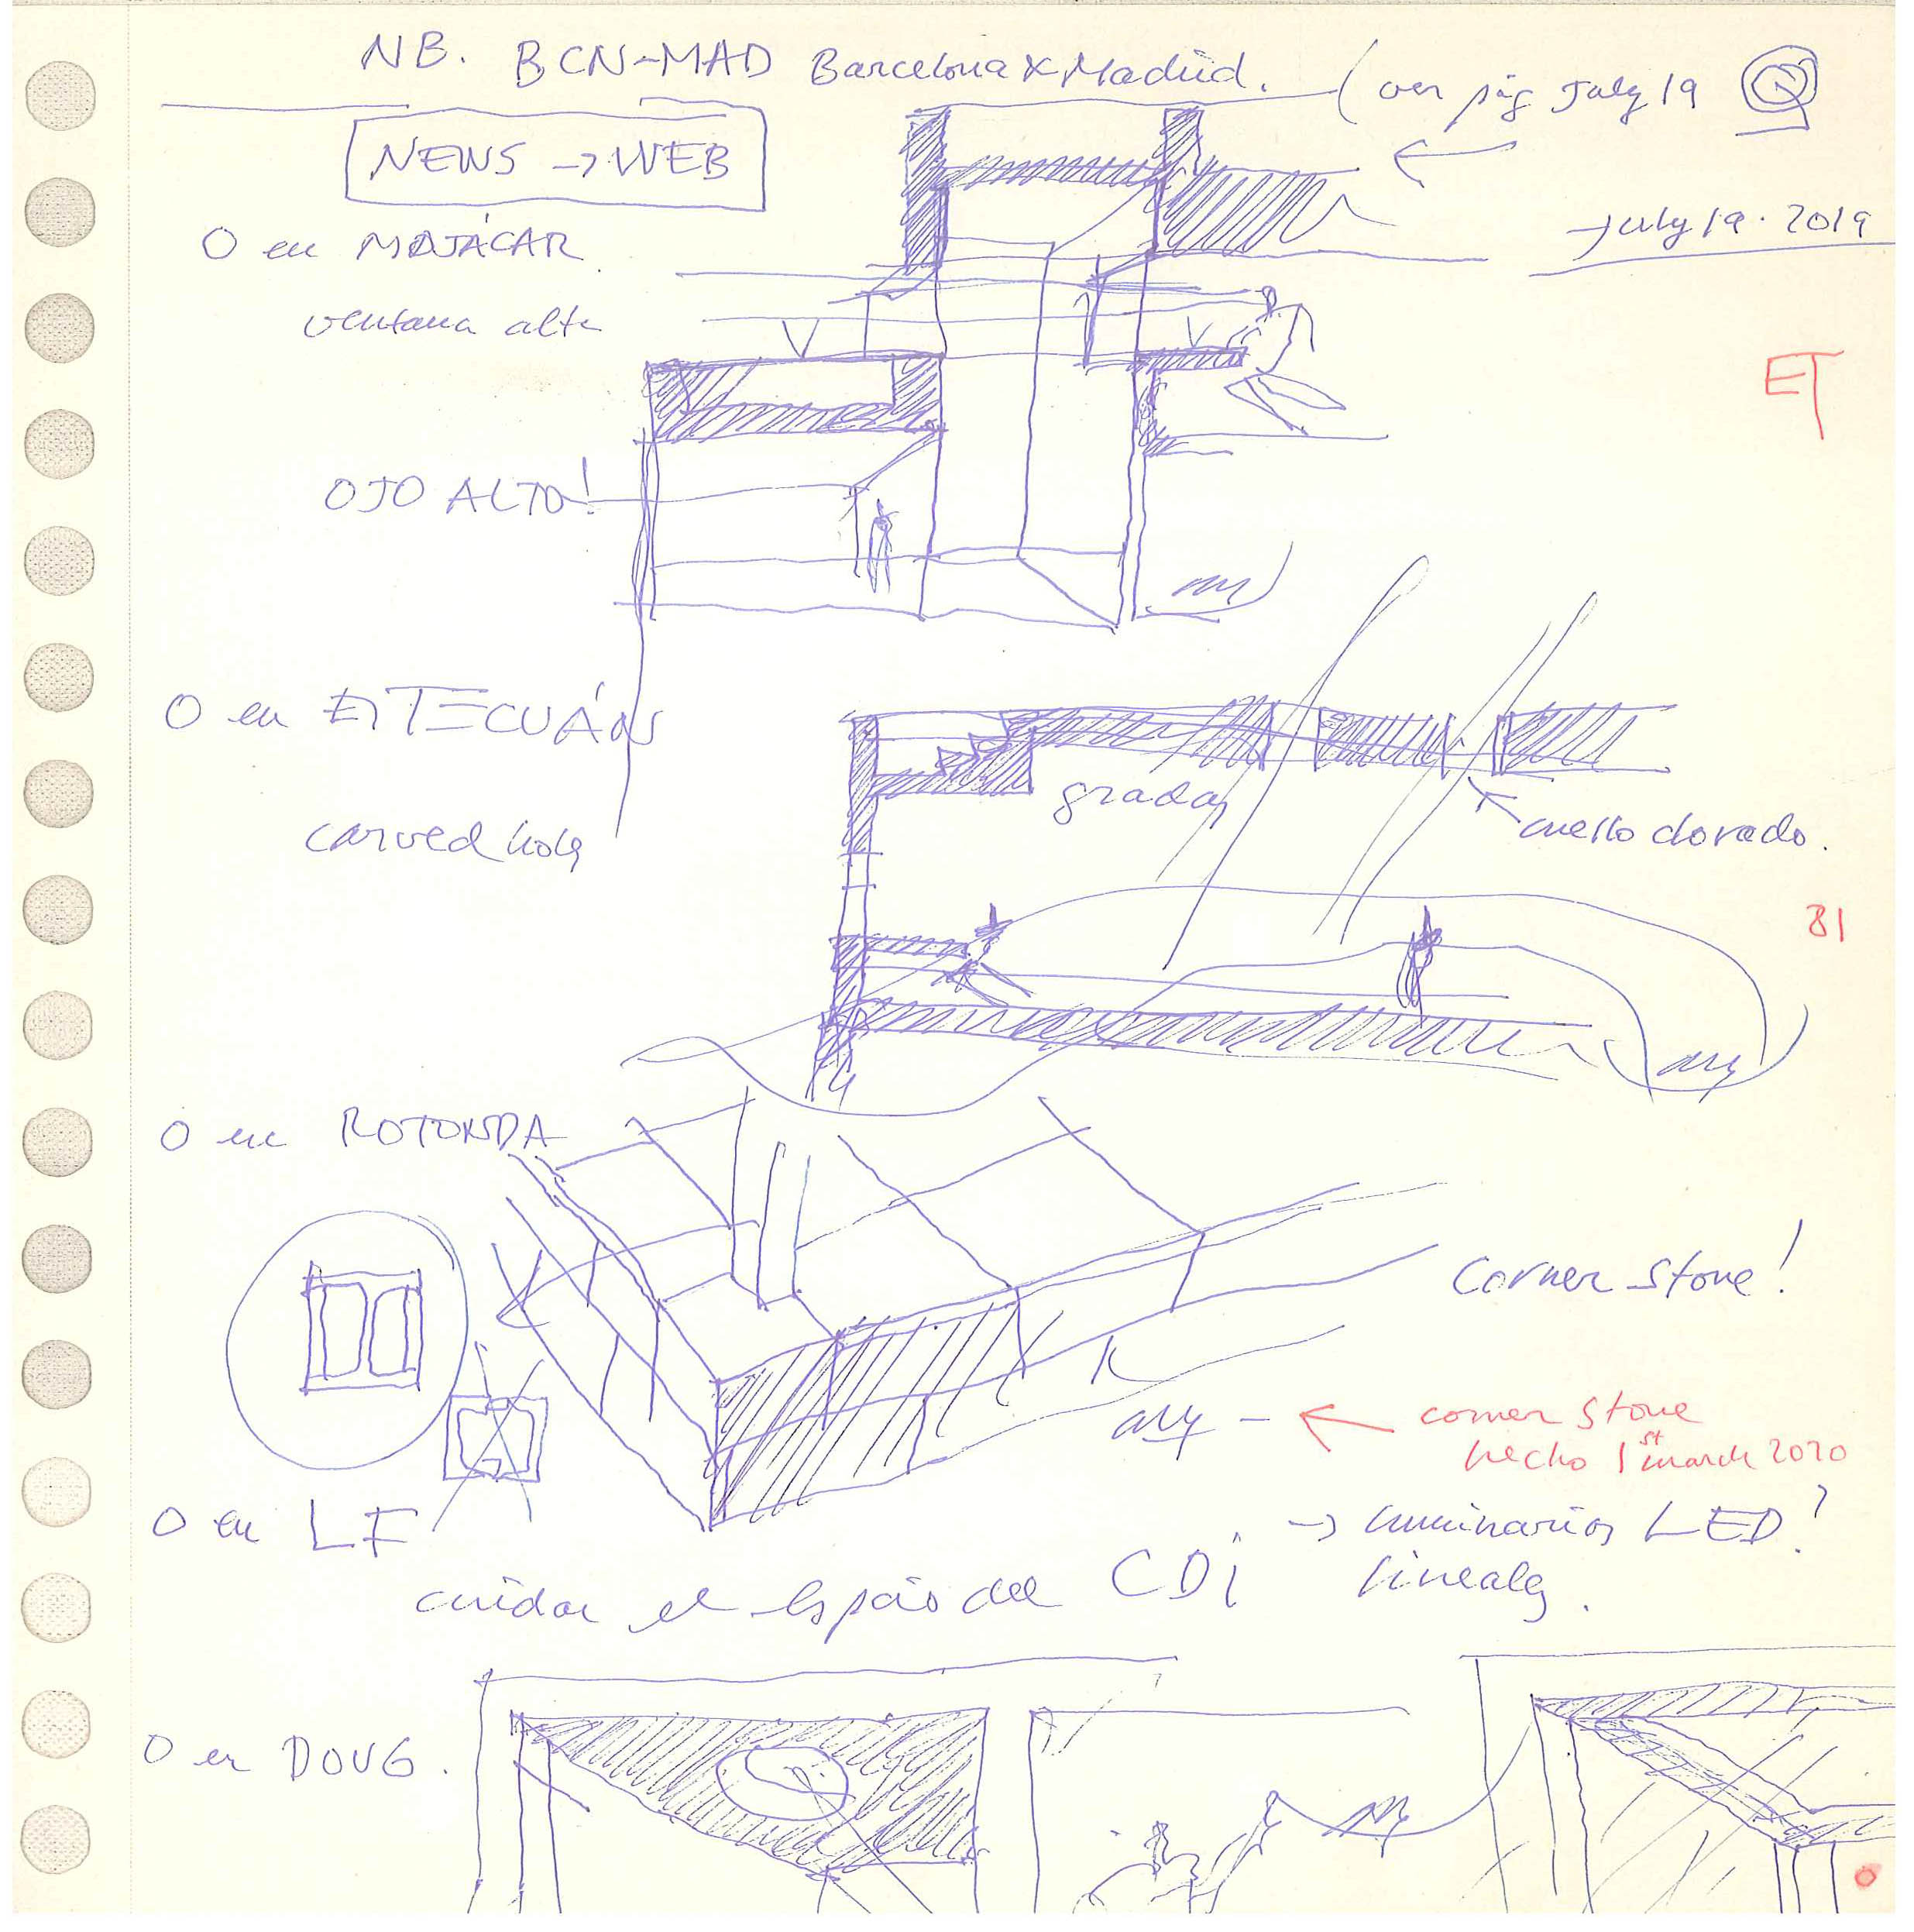 NB. BCN-MAD Barcelona x Madrid. (ver pág July 19
NEWS → WEB
July 19. 2019
O en MOJÁCAR
ventana alta
ET
OJO ALTO!
O en ETTECUÁN
gradas
cuello dorado.
carved hole
81
O en ROTONDA
Corner stone!
corner stone
hecho 1st march 2020
O en LF
→ luminarias LED?
lineales.
cuidar el espacio del CDi
O en DOUG.